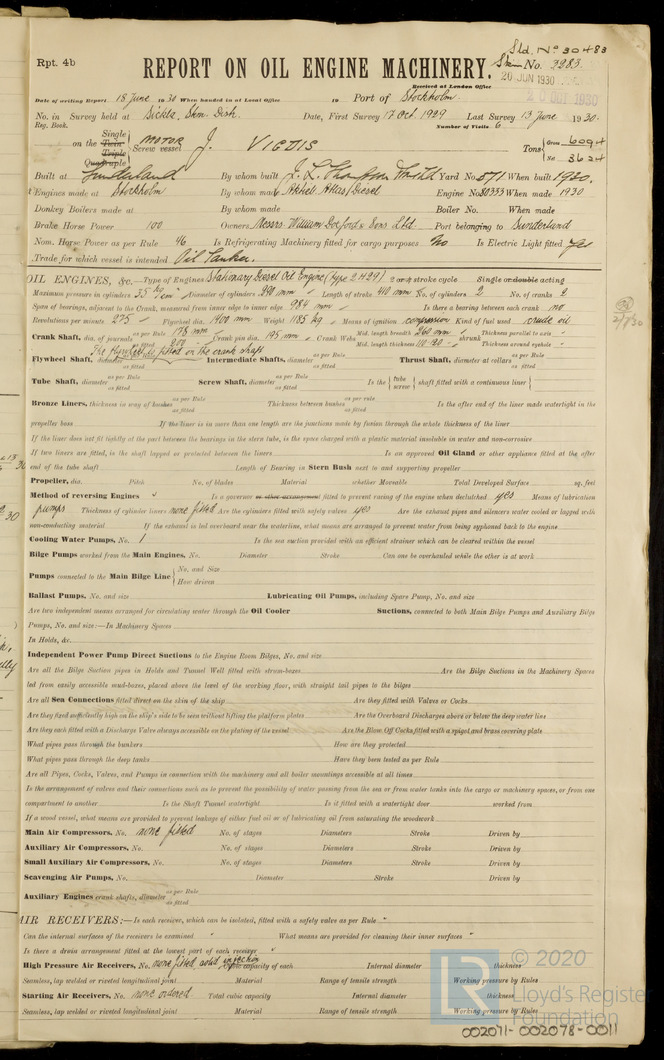 Rpt. 4b
REPORT ON OIL ENGINE MACHINERY.
Sld. No 30483
No. 3283
20 JUN 1930
Received at London Office
20 OCT 1930
Date of writing Report 18 June 1930 When handed in at Local Office 19 Port of Stockholm
No. in Survey held at Sickla, Sthm. Distr. Date, First Survey 17 Oct 1929 Last Survey 13 June 1930.
Reg. Book. Number of Visits 6
on the Single Twin Triple Quadruple Screw vessel MOTOR J. VIGDIS Tons Gross 6094 Net 3624
Built at Sunderland By whom built J. L. Thompson Yard No. 571 When built 1930.
Engines made at Stockholm By whom made Aktieb. Atlas Diesel Engine No. 80333 When made 1930
Donkey Boilers made at By whom made Boiler No. When made
Brake Horse Power 100 Owners Messrs William Doxford & Sons Ltd. Port belonging to Sunderland
Nom. Horse Power as per Rule 46 Is Refrigerating Machinery fitted for cargo purposes No Is Electric Light fitted Yes
Trade for which vessel is intended Oil Tanker.
OIL ENGINES, &c.—Type of Engines Stationary Diesel Oil Engine (Type 2H29) 2 or 4 stroke cycle Single or double acting
Maximum pressure in cylinders 55 kg/cm² Diameter of cylinders 290 mm Length of stroke 410 mm No. of cylinders 2 No. of cranks 2
Span of bearings, adjacent to the Crank, measured from inner edge to inner edge 984 mm Is there a bearing between each crank no
Revolutions per minute 275 Flywheel dia. 1400 mm Weight 1185 kg Means of ignition compression Kind of fuel used crude oil
Crank Shaft, dia. of journals as per Rule 178 mm as fitted 200 Crank pin dia. 195 mm Crank Webs Mid. length breadth 260 mm Mid. length thickness 110-120 shrunk Thickness parallel to axis Thickness around eyehole
The flywheel is fitted on the crank shaft
Flywheel Shaft, diameter as per Rule as fitted Intermediate Shafts, diameter as per Rule as fitted Thrust Shaft, diameter at collars as per Rule as fitted
Tube Shaft, diameter as per Rule as fitted Screw Shaft, diameter as per Rule as fitted Is the tube screw shaft fitted with a continuous liner
Bronze Liners, thickness in way of bushes as per Rule as fitted Thickness between bushes as per rule as fitted Is the after end of the liner made watertight in the
propeller boss If the liner is in more than one length are the junctions made by fusion through the whole thickness of the liner
If the liner does not fit tightly at the part between the bearings in the stern tube, is the space charged with a plastic material insoluble in water and non-corrosive
If two liners are fitted, is the shaft lapped or protected between the liners Is an approved Oil Gland or other appliance fitted at the after
end of the tube shaft Length of Bearing in Stern Bush next to and supporting propeller
Propeller, dia. Pitch No. of blades Material whether Moveable Total Developed Surface sq. feet
Method of reversing Engines Is a governor or other arrangement fitted to prevent racing of the engine when declutched yes Means of lubrication
pumps Thickness of cylinder liners none fitted Are the cylinders fitted with safety valves yes Are the exhaust pipes and silencers water cooled or lagged with
non-conducting material If the exhaust is led overboard near the waterline, what means are arranged to prevent water from being syphoned back to the engine
Cooling Water Pumps, No. 1 Is the sea suction provided with an efficient strainer which can be cleared within the vessel
Bilge Pumps worked from the Main Engines, No. Diameter Stroke Can one be overhauled while the other is at work
Pumps connected to the Main Bilge Line No. and Size How driven
Ballast Pumps, No. and size Lubricating Oil Pumps, including Spare Pump, No. and size
Are two independent means arranged for circulating water through the Oil Cooler Suctions, connected to both Main Bilge Pumps and Auxiliary Bilge
Pumps, No. and size:—In Machinery Spaces
In Holds, &c.
Independent Power Pump Direct Suctions to the Engine Room Bilges, No. and size
Are all the Bilge Suction pipes in Holds and Tunnel Well fitted with strum-boxes Are the Bilge Suctions in the Machinery Spaces
led from easily accessible mud-boxes, placed above the level of the working floor, with straight tail pipes to the bilges
Are all Sea Connections fitted direct on the skin of the ship Are they fitted with Valves or Cocks
Are they fixed sufficiently high on the ship's side to be seen without lifting the platform plates Are the Overboard Discharges above or below the deep water line
Are they each fitted with a Discharge Valve always accessible on the plating of the vessel Are the Blow Off Cocks fitted with a spigot and brass covering plate
What pipes pass through the bunkers How are they protected
What pipes pass through the deep tanks Have they been tested as per Rule
Are all Pipes, Cocks, Valves, and Pumps in connection with the machinery and all boiler mountings accessible at all times
Is the arrangement of valves and their connections such as to prevent the possibility of water passing from the sea or from water tanks into the cargo or machinery spaces, or from one
compartment to another Is the Shaft Tunnel watertight Is it fitted with a watertight door worked from
If a wood vessel, what means are provided to prevent leakage of either fuel oil or of lubricating oil from saturating the woodwork
Main Air Compressors, No. none fitted No. of stages Diameters Stroke Driven by
Auxiliary Air Compressors, No. No. of stages Diameters Stroke Driven by
Small Auxiliary Air Compressors, No. No. of stages Diameters Stroke Driven by
Scavenging Air Pumps, No. Diameter Stroke Driven by
Auxiliary Engines crank shafts, diameter as per Rule as fitted
AIR RECEIVERS:—Is each receiver, which can be isolated, fitted with a safety valve as per Rule "
Can the internal surfaces of the receivers be examined " What means are provided for cleaning their inner surfaces "
Is there a drain arrangement fitted at the lowest part of each receiver "
High Pressure Air Receivers, No. none fitted solid injection Cubic capacity of each Internal diameter thickness
Seamless, lap welded or riveted longitudinal joint Material Range of tensile strength Working pressure by Rules
Starting Air Receivers, No. none ordered Total cubic capacity Internal diameter thickness
Seamless, lap welded or riveted longitudinal joint Material Range of tensile strength Working pressure by Rules
© 2020
Lloyd's Register
Foundation
LR
002071-002078-0011